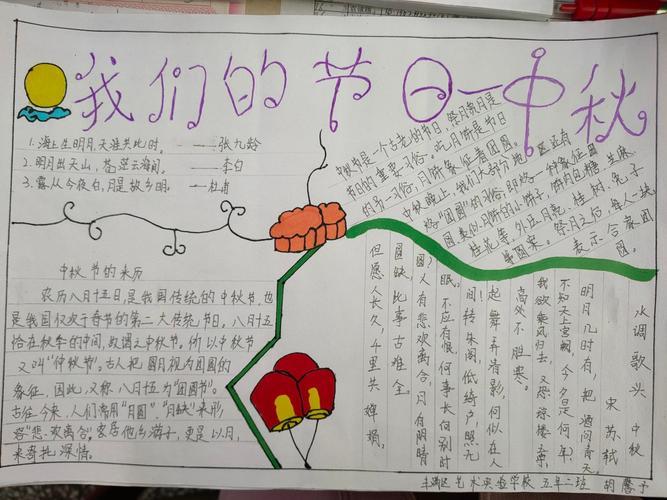 我们的节日—中秋
1.海上生明月,天涯共此时。 ——张九龄
2.明月出天山,苍茫云海间。 ——李白
3.露从今夜白,月是故乡明。 ——杜甫
中秋节是一个古老的节日,祭月赏月是
节日的重要习俗。吃月饼是节日
的另一习俗,月饼象征着团圆。
中秋晚上,我们大部分地区还有
烙“团圆”的习俗,即烙一种象征团
圆、类似月饼的小饼子,饼内包糖、芝麻、
桂花等,外压月亮、桂树、兔子
等图案。祭月之后,每人一块,
表示合家团
圆。
中秋节的来历
农历八月十五日,是我国传统的中秋节,也
是我国仅次于春节的第二大传统节日。八月十五
恰在秋季的中间,故谓之中秋节。所以中秋节
又叫“仲秋节”。古人把圆月视为团圆的
象征,因此,又称八月十五为“团圆节”。
古往今来,人们常用“月圆”、“月缺”来形
容“悲欢离合”。客居他乡游子,更是以月
来寄托深情。
水调歌头 中秋
宋 苏轼
明月几时有,把酒问青天。
不知天上宫阙,今夕是何年。
我欲乘风归去,又恐琼楼
高处不胜寒。
起舞弄清影,何似在人
间!转朱阁,低绮户,照无
眠。不应有恨,何事长向别时
圆?人有悲欢离合,月有阴晴
圆缺,此事古难全。
但愿人长久,千里共婵娟。
丰满区艺术实验学校 五年二班 胡馨予